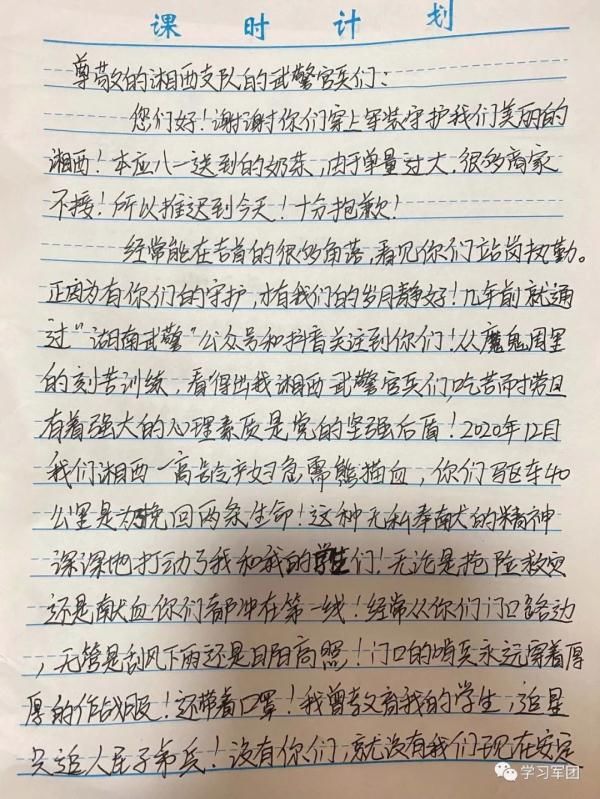 课时计划
尊敬的湘西支队的武警官兵们:
您们好!谢谢你们穿上军装守护我们美丽的
湘西!本应八一送到的奶茶,由于单量过大.很多商家
不接!所以推迟到今天!十分抱歉!
经常能在吉首的很多角落,看见你们站岗执勤。
正因为有你们的守护,才有我们的岁月静好!几年前就通
过“湖南武警”公众号和抖音关注到你们!从魔鬼周里
的刻苦训练,看得出我湘西武警官兵们,吃苦而耐劳且
有着强大的心理素质是党的坚强后盾!2020年12月
我们湘西一高龄产妇急需熊猫血,你们驱车40
公里是为挽回两条生命!这种无私奉献的精神
深深地打动了我和我的学生们!无论是抢险救灾
还是献血你们都冲在第一线!经常从你们门口路边
,无管是刮风下雨还是日阳高照!门口的哨兵永远穿着厚
厚的作战服!还带着口罩!我曾教育我的学生,追星
只追人民子弟兵!没有你们,就没有我们现在安定
学习军团